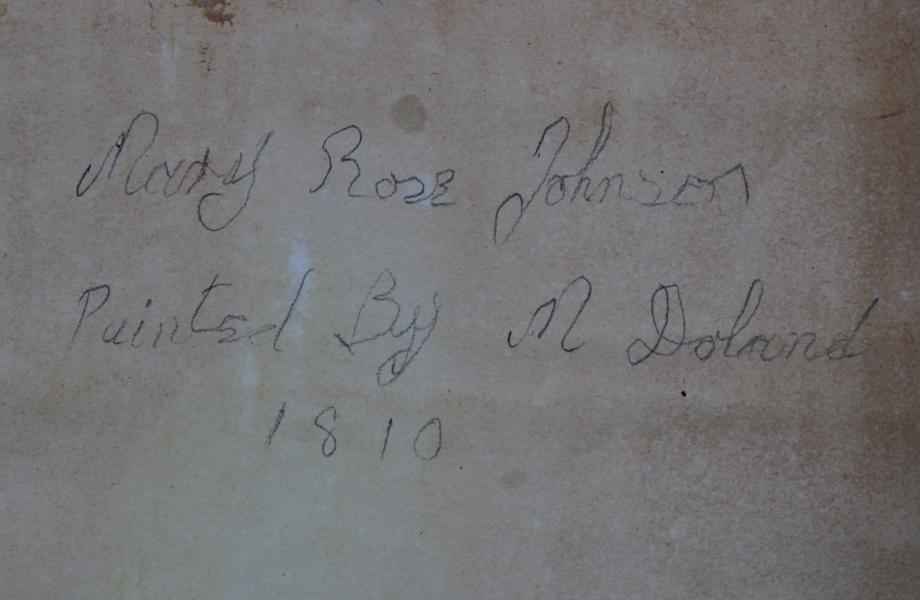 Mary Rose Johnson
Painted By M Doland
1810